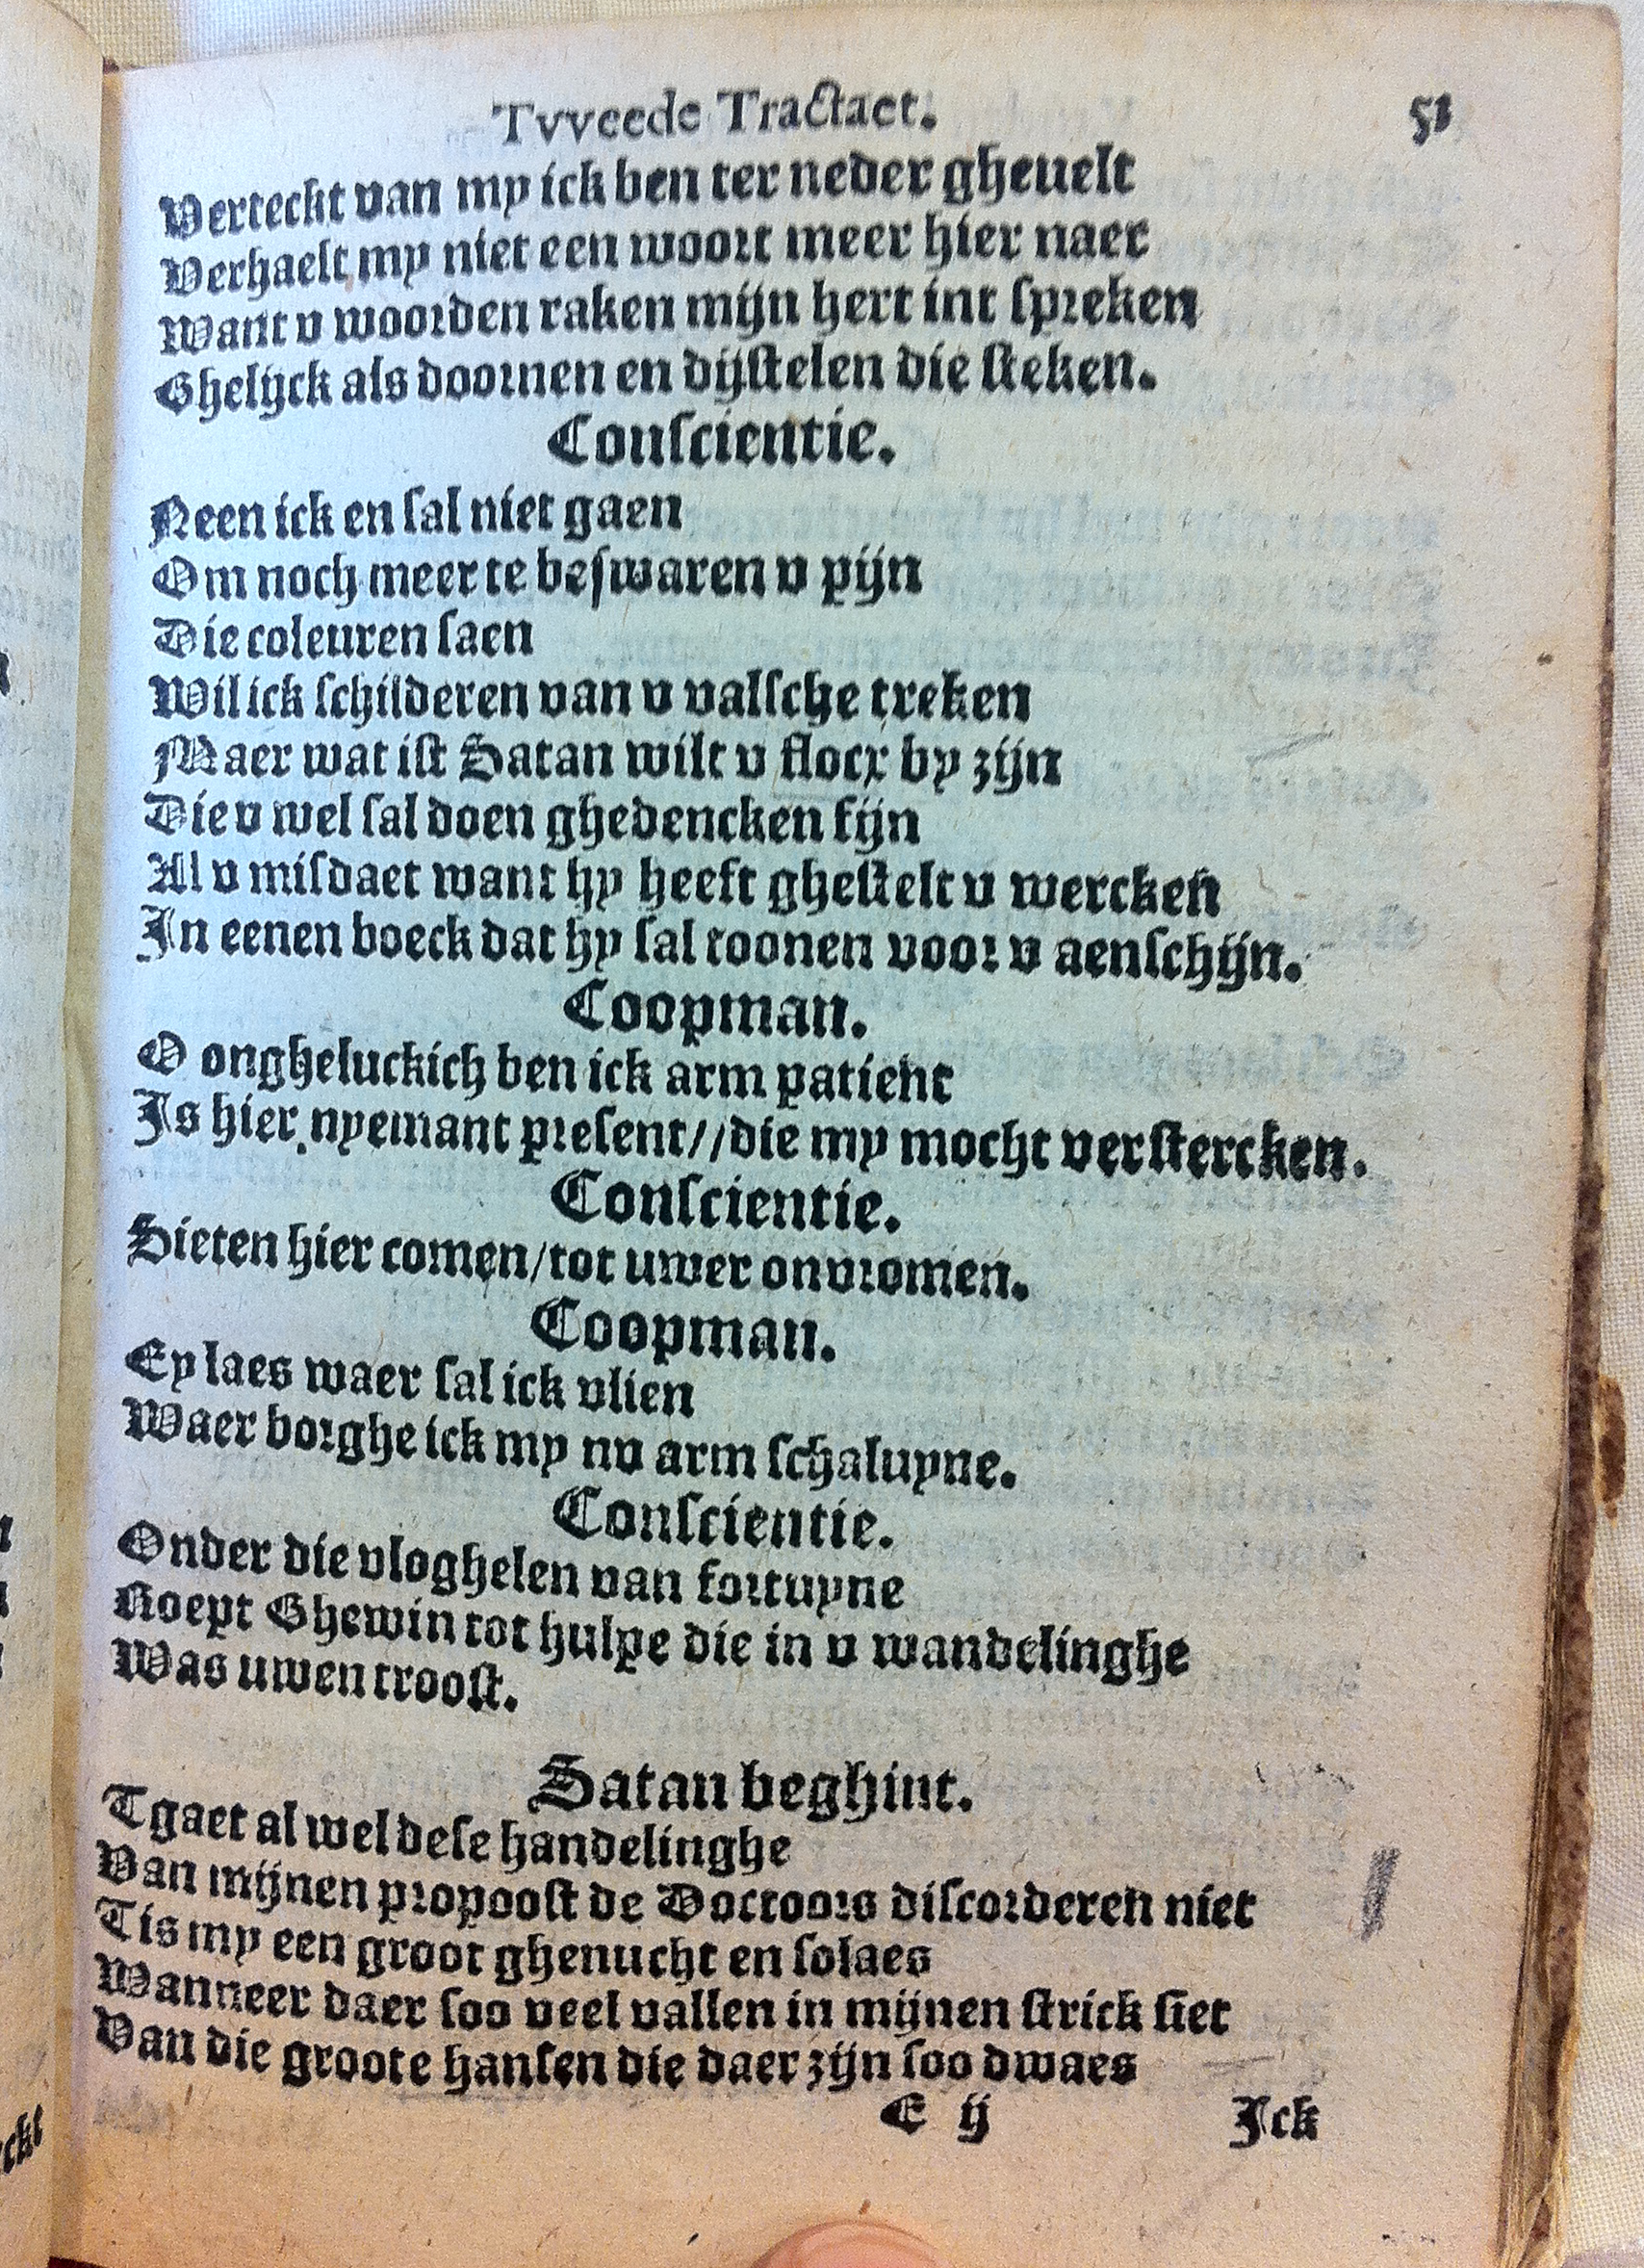 Tvveede Tractaet. 51
Verteckt van my ick ben ter neder gheuelt
Verhaelt my niet een woort meer hier naer
Want v woorden raken mijn hert int spreken
Ghelijck als doornen en dijstelen die steken.
Conscientie.
Neen ick en sal niet gaen
Om noch meer te beswaren v pijn
Die coleuren saen
Wil ick schilderen van v valsche treken
Maer wat ist Satan wilt v flocx by zijn
Die v wel sal doen ghedencken fijn
Al v misdaet want hy heeft ghestelt v wercken
In eenen boeck dat hy sal toonen voor v aenschijn.
Coopman.
O ongheluckich ben ick arm patient
Is hier nyemant present//die my mocht verstercken.
Conscientie.
Sieten hier comen/tot uwer onvromen.
Coopman.
Ey laes waer sal ick vlien
Waer borghe ick my nv arm schaluyne.
Conscientie.
Onder die vloghelen van fortuyne
Roept Ghewin tot hulpe die in v wandelinghe
Was uwen troost.
Satan beghint.
Tgaet al wel dese handelinghe
Van mijnen propoost de Doctoors discorderen niet
Tis my een groot ghenucht en solaes
Wanneer daer soo veel vallen in mijnen strick siet
Van die groote hansen die daer zijn soo dwaes
E ij Ick